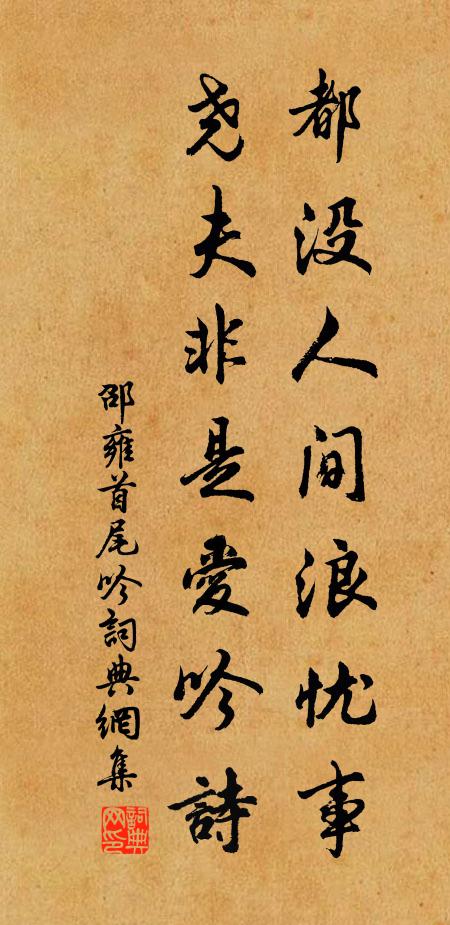 都没人间浪忧事
尧夫非是爱吟詩
邵雍首尾吟詞典網集
詞典網印